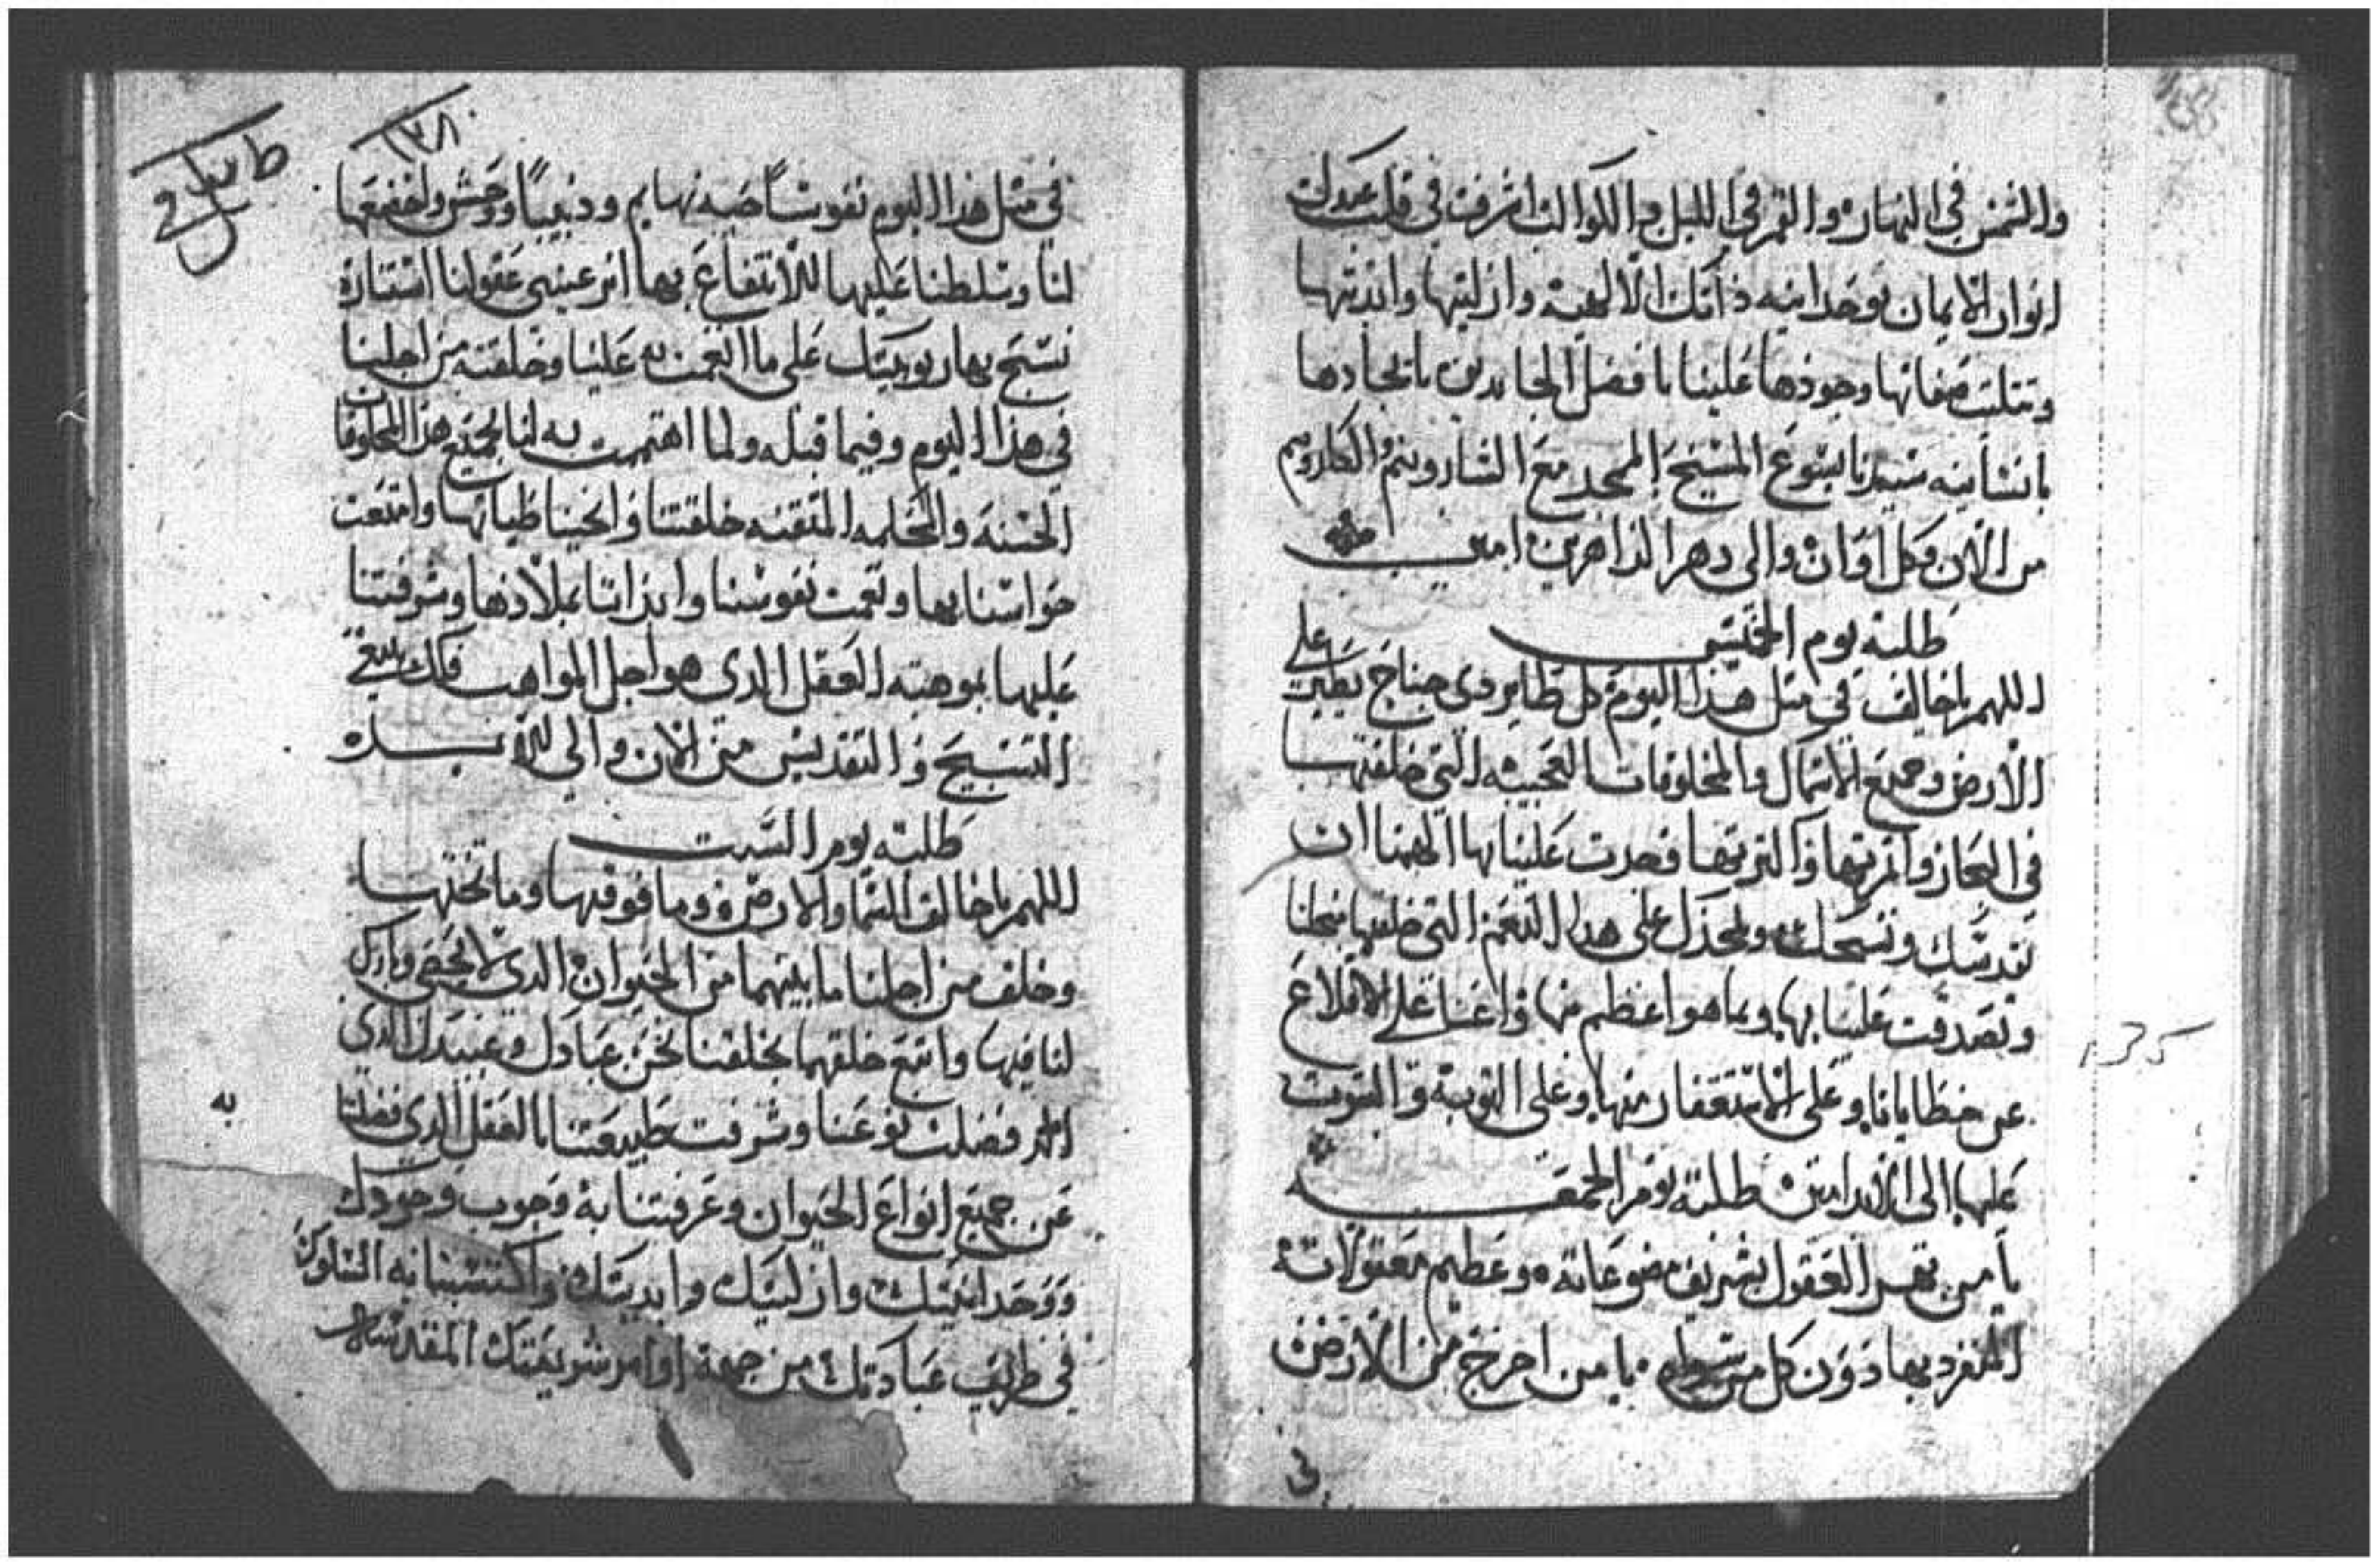 والشمس في النهار والقمر في الليل والكواكب اشرقت في قلب عبدك
انوار الايمان بوحدانيه ذاتك الالهية وازليتها وابديتها
وتثليث صفاتها وجودها علينا يا افضل الجايدين بايجادها
بانشأنيه سيدنا يسوع المسيح الممجد مع الشاروبيم والكاروبيم
من الان وكل اوان والى دهر الداهرين امين
طلبة يوم الخميس
اللهم يا خالق في مثل هذا اليوم كل طاير ذي جناح يطير على
الارض وجميع الاسماك والمخلوقات العجيبه التي خلقتها
في البحار وامرتها واكثرتها فجدت علينا بها الهمنا ان
نقدسك ونسبحك ونمجدك على هذا النعم التي خلقتها منحلنا
وتصدقت علينا بها وبما هو اعظم منها واعنا على الاقلاع
عن خطايانا وعلى الاستغفار منها وعلى التوبة والثبوت
عليها الى الابد امين طلبة يوم الجمعه
يا من بهر العقول بشريف مصنوعاته وعظيم معقولاته
المنفرد بها دون كل من سواه يا من اخرج من الارض
في
١٣٨
في مثل هذا اليوم نفوسا حيه بهايم ودبيبا ووحش واخضعها
لنا وسلطنا عليها للانتفاع بها انر عيني عقولنا استنارة
نسبح بها ربوبيتك على ما انعمت به علينا وخلقته من اجلنا
في هذا اليوم وفيما قبله ولما اهتممت به لنا بجميع هذه المخلوقات
الحسنه والمحكمه المتقنه خلقتنا واحيينا طباتها وامتعت
حواسنا بها ونعمت نفوسنا وابداننا بملاذها وشرفتنا
عليها بموهبة العقل الذي هو اجل المواهب فلك ينبغي
التسبيح والتقديس من الان والى الابد
طلبة يوم السبت
اللهم يا خالق السما والارض وما فوقها وما تحتها
وخلق من اجلنا ما بينهما من الحيوان الذي لا يحصى وبارك
لنا فيها واتبع خلقهما بخلقتنا نحن عبادك وعبيدك الذي
اللهم فضلت نوعنا وشرفت طبيعتنا بالعقل الذي فضلتنا
به
عن جميع انواع الحيوان وعرفتنا به وجوب وجودك
ووحدانيتك وازليتك وابديتك واكتسبنا به السلوك
في طريق عبادتك من جهة اوامر شريعتك المقدسه
135